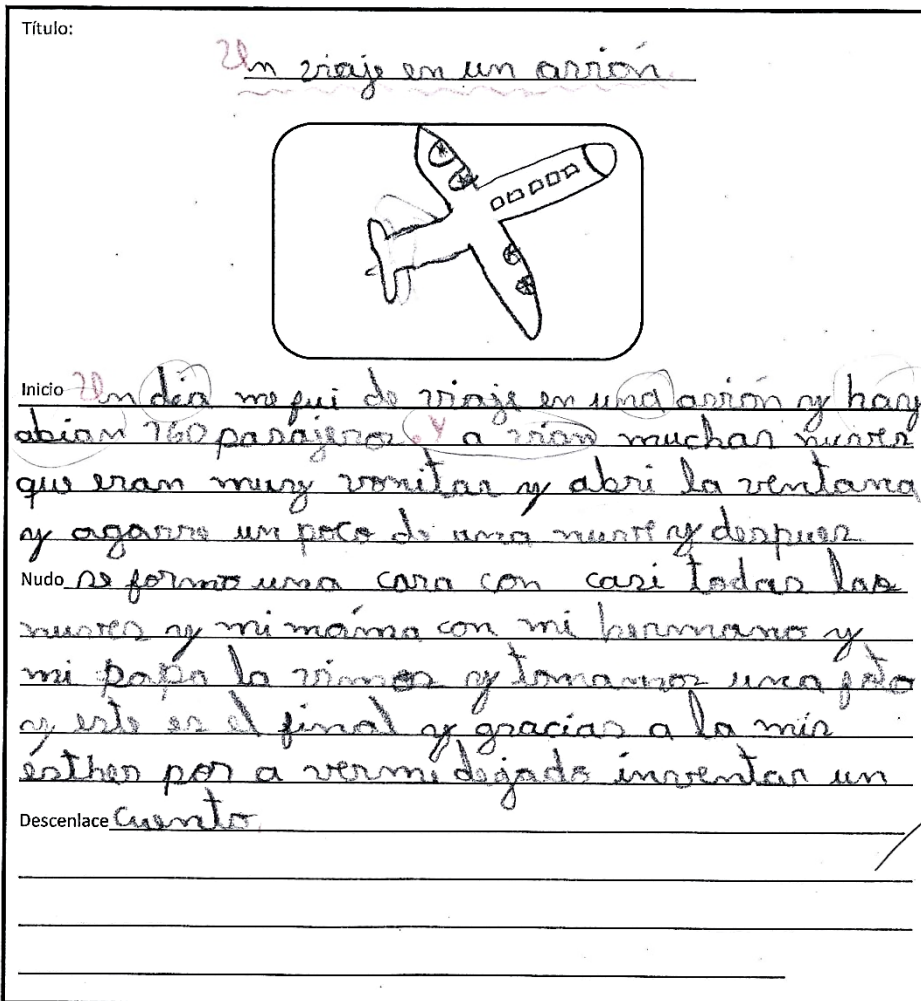 Título:
Un viaje en un avrión
Inicio Un día me fui de viaje en una avión y hay
abian 160 pasajeros. Y a vian muchas nuves
que eran muy vonitas y abri la ventana
y agarre un poco de una nuve y despues
Nudo se formo una cara con casi todas las
nuves y mi máma con mi hermano y
mi papá la vimos y tomamos una foto
y este es el final y gracias a la mis
esther por a verme dejado inventar un
Descenlace Cuento